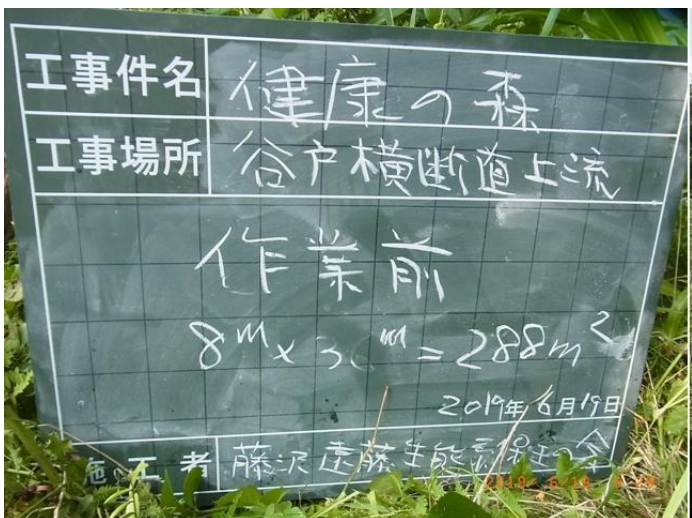 工事件名 健康の森
工事場所 谷戸横断道上流
作業前
8m×36m=288m²
2019年6月19日
施工者 藤沢遠藤生態系保全の会